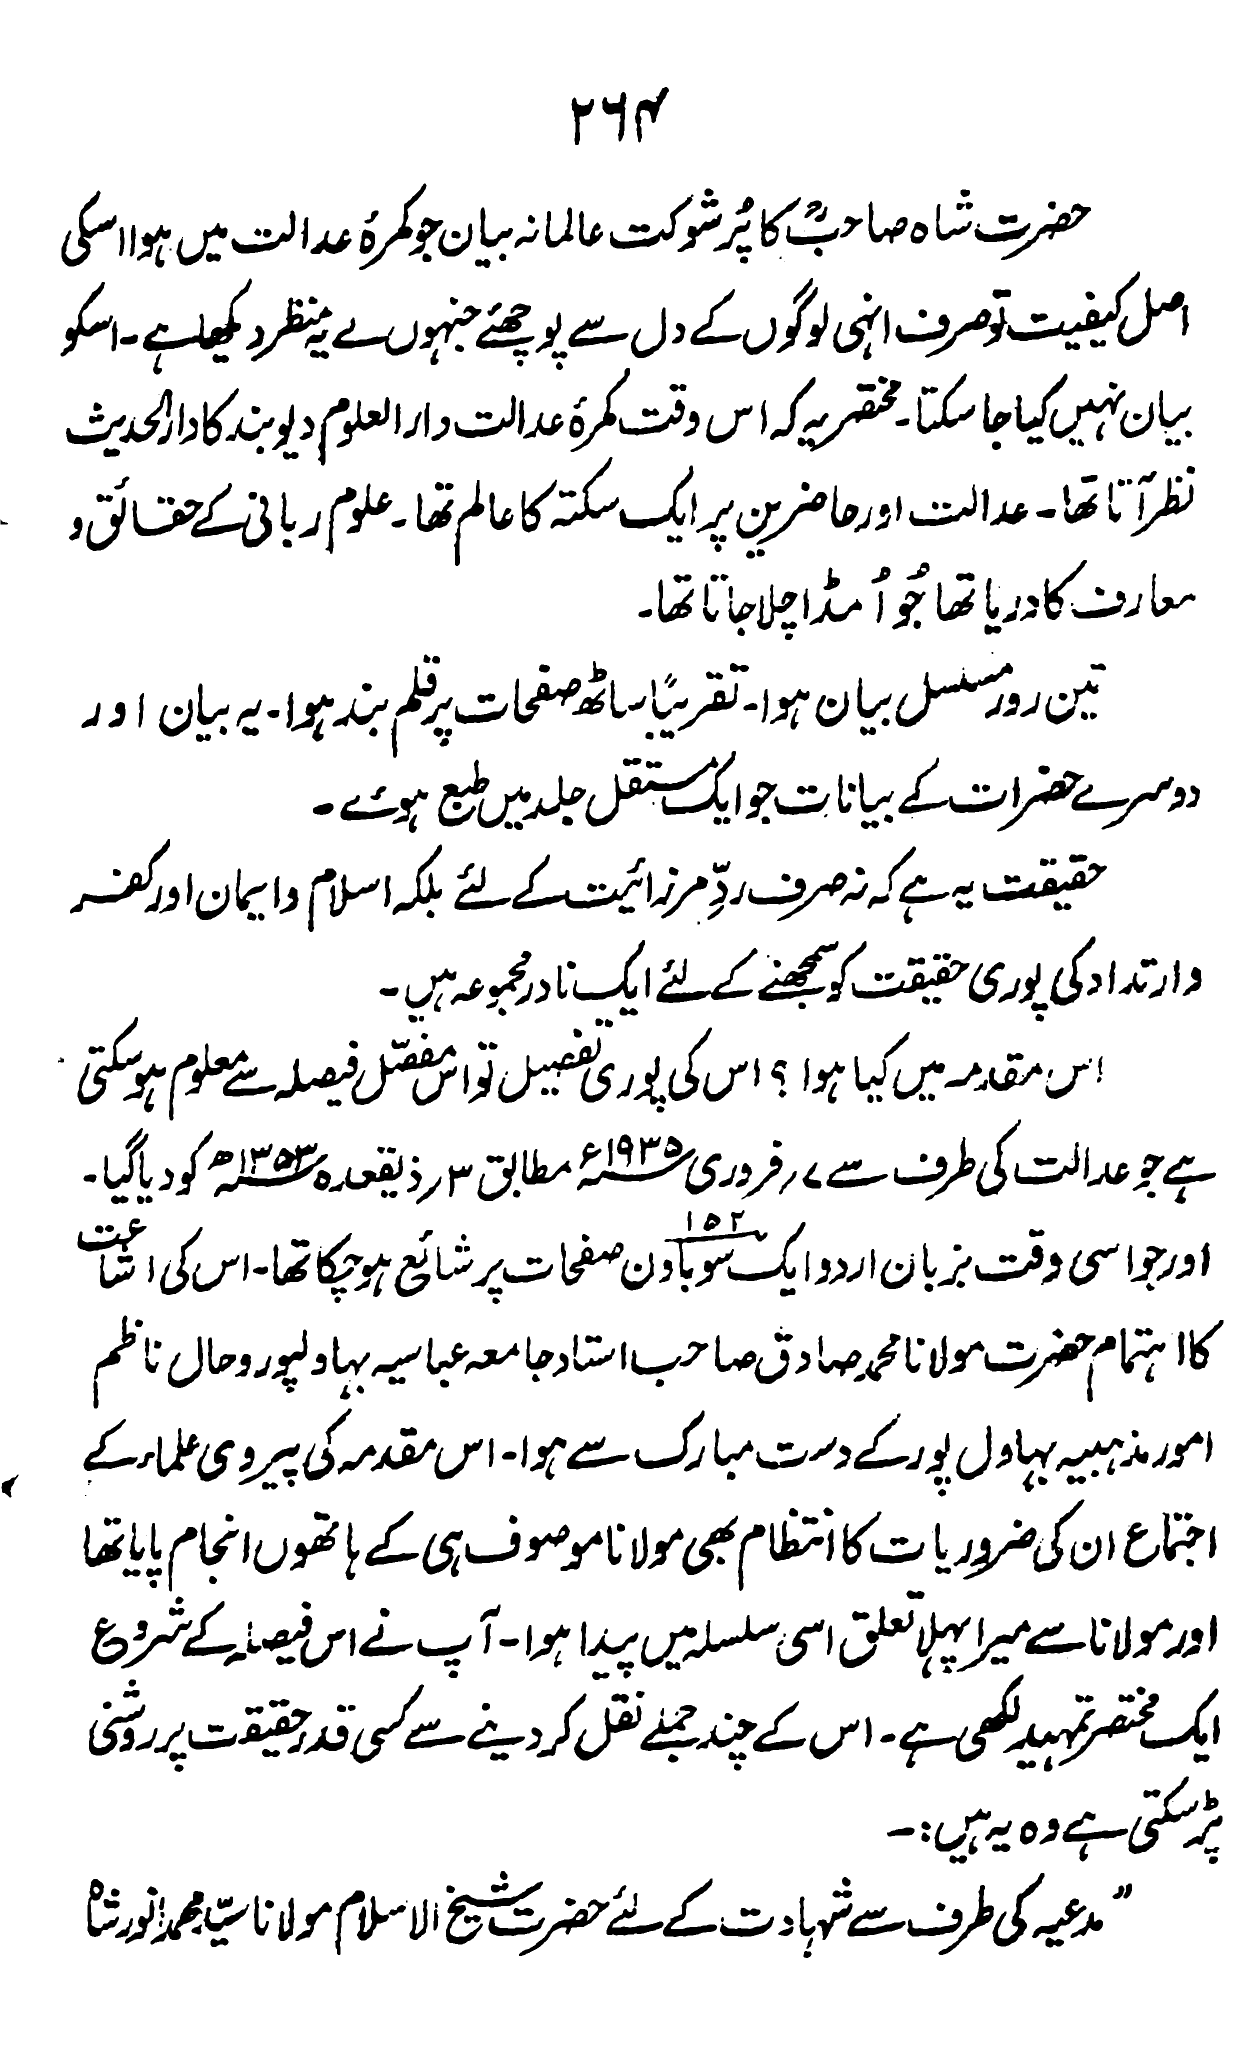 ۲۶۴
حضرت شاہ صاحبؒ کا پُر شوکت عالمانہ بیان جو کمرۂ عدالت میں ہوا اسکی
اصل کیفیت تو صرف انہی لوگوں کے دل سے پوچھئے جنہوں نے یہ منظر دیکھا ہے۔ اسکو
بیان نہیں کیا جا سکتا۔ مختصر یہ کہ اس وقت کمرۂ عدالت دار العلوم دیوبند کا دار الحدیث
نظر آتا تھا۔ عدالت اور حاضرین پر ایک سکتہ کا عالم تھا۔ علوم ربانی کے حقائق و
معارف کا دریا تھا جُو اُمڈا چلا جاتا تھا۔
تین روز مسلسل بیان ہوا۔ تقریبًا ساٹھ صفحات پر قلم بند ہوا۔ یہ بیان اور
دوسرے حضرات کے بیانات جو ایک مستقل جلد میں طبع ہوئے۔
حقیقت یہ ہے کہ نہ صرف ردِّ مرزائیت کے لئے بلکہ اسلام و ایمان اور کفر
و ارتداد کی پوری حقیقت کو سمجھنے کے لئے ایک نادر مجموعہ ہیں۔
اس مقدمہ میں کیا ہوا ؟ اس کی پوری تفصیل تو اس مفصّل فیصلہ سے معلوم ہو سکتی
ہے جو عدالت کی طرف سے ۷؍ فروری ۱۹۳۵ء مطابق ۳؍ ذیقعدہ ۱۳۵۳ھ کو دیا گیا۔
اور جو اسی وقت بزبان اردو ایک سو باون ۱۵۲ صفحات پر شائع ہو چکا تھا۔ اس کی اشاعت
کا اہتمام حضرت مولانا محمد صادق صاحب استاد جامعہ عباسیہ بہاولپور و حال ناظم
امور مذہبیہ بہاول پور کے دست مبارک سے ہوا۔ اس مقدمہ کی پیروی علماء کے
اجتماع ان کی ضروریات کا انتظام بھی مولانا موصوف ہی کے ہاتھوں انجام پایا تھا
اور مولانا سے میرا پہلا تعلق اسی سلسلہ میں پیدا ہوا۔ آپ نے اس فیصلہ کے شروع
ایک مختصر تمہید لکھی ہے۔ اس کے چند جملے نقل کر دینے سے کسی قدر حقیقت پر روشنی
پڑ سکتی ہے وہ یہ ہیں :۔
” مدعیہ کی طرف سے شہادت کے لئے حضرت شیخ الاسلام مولانا سیّد محمد انور شاہ